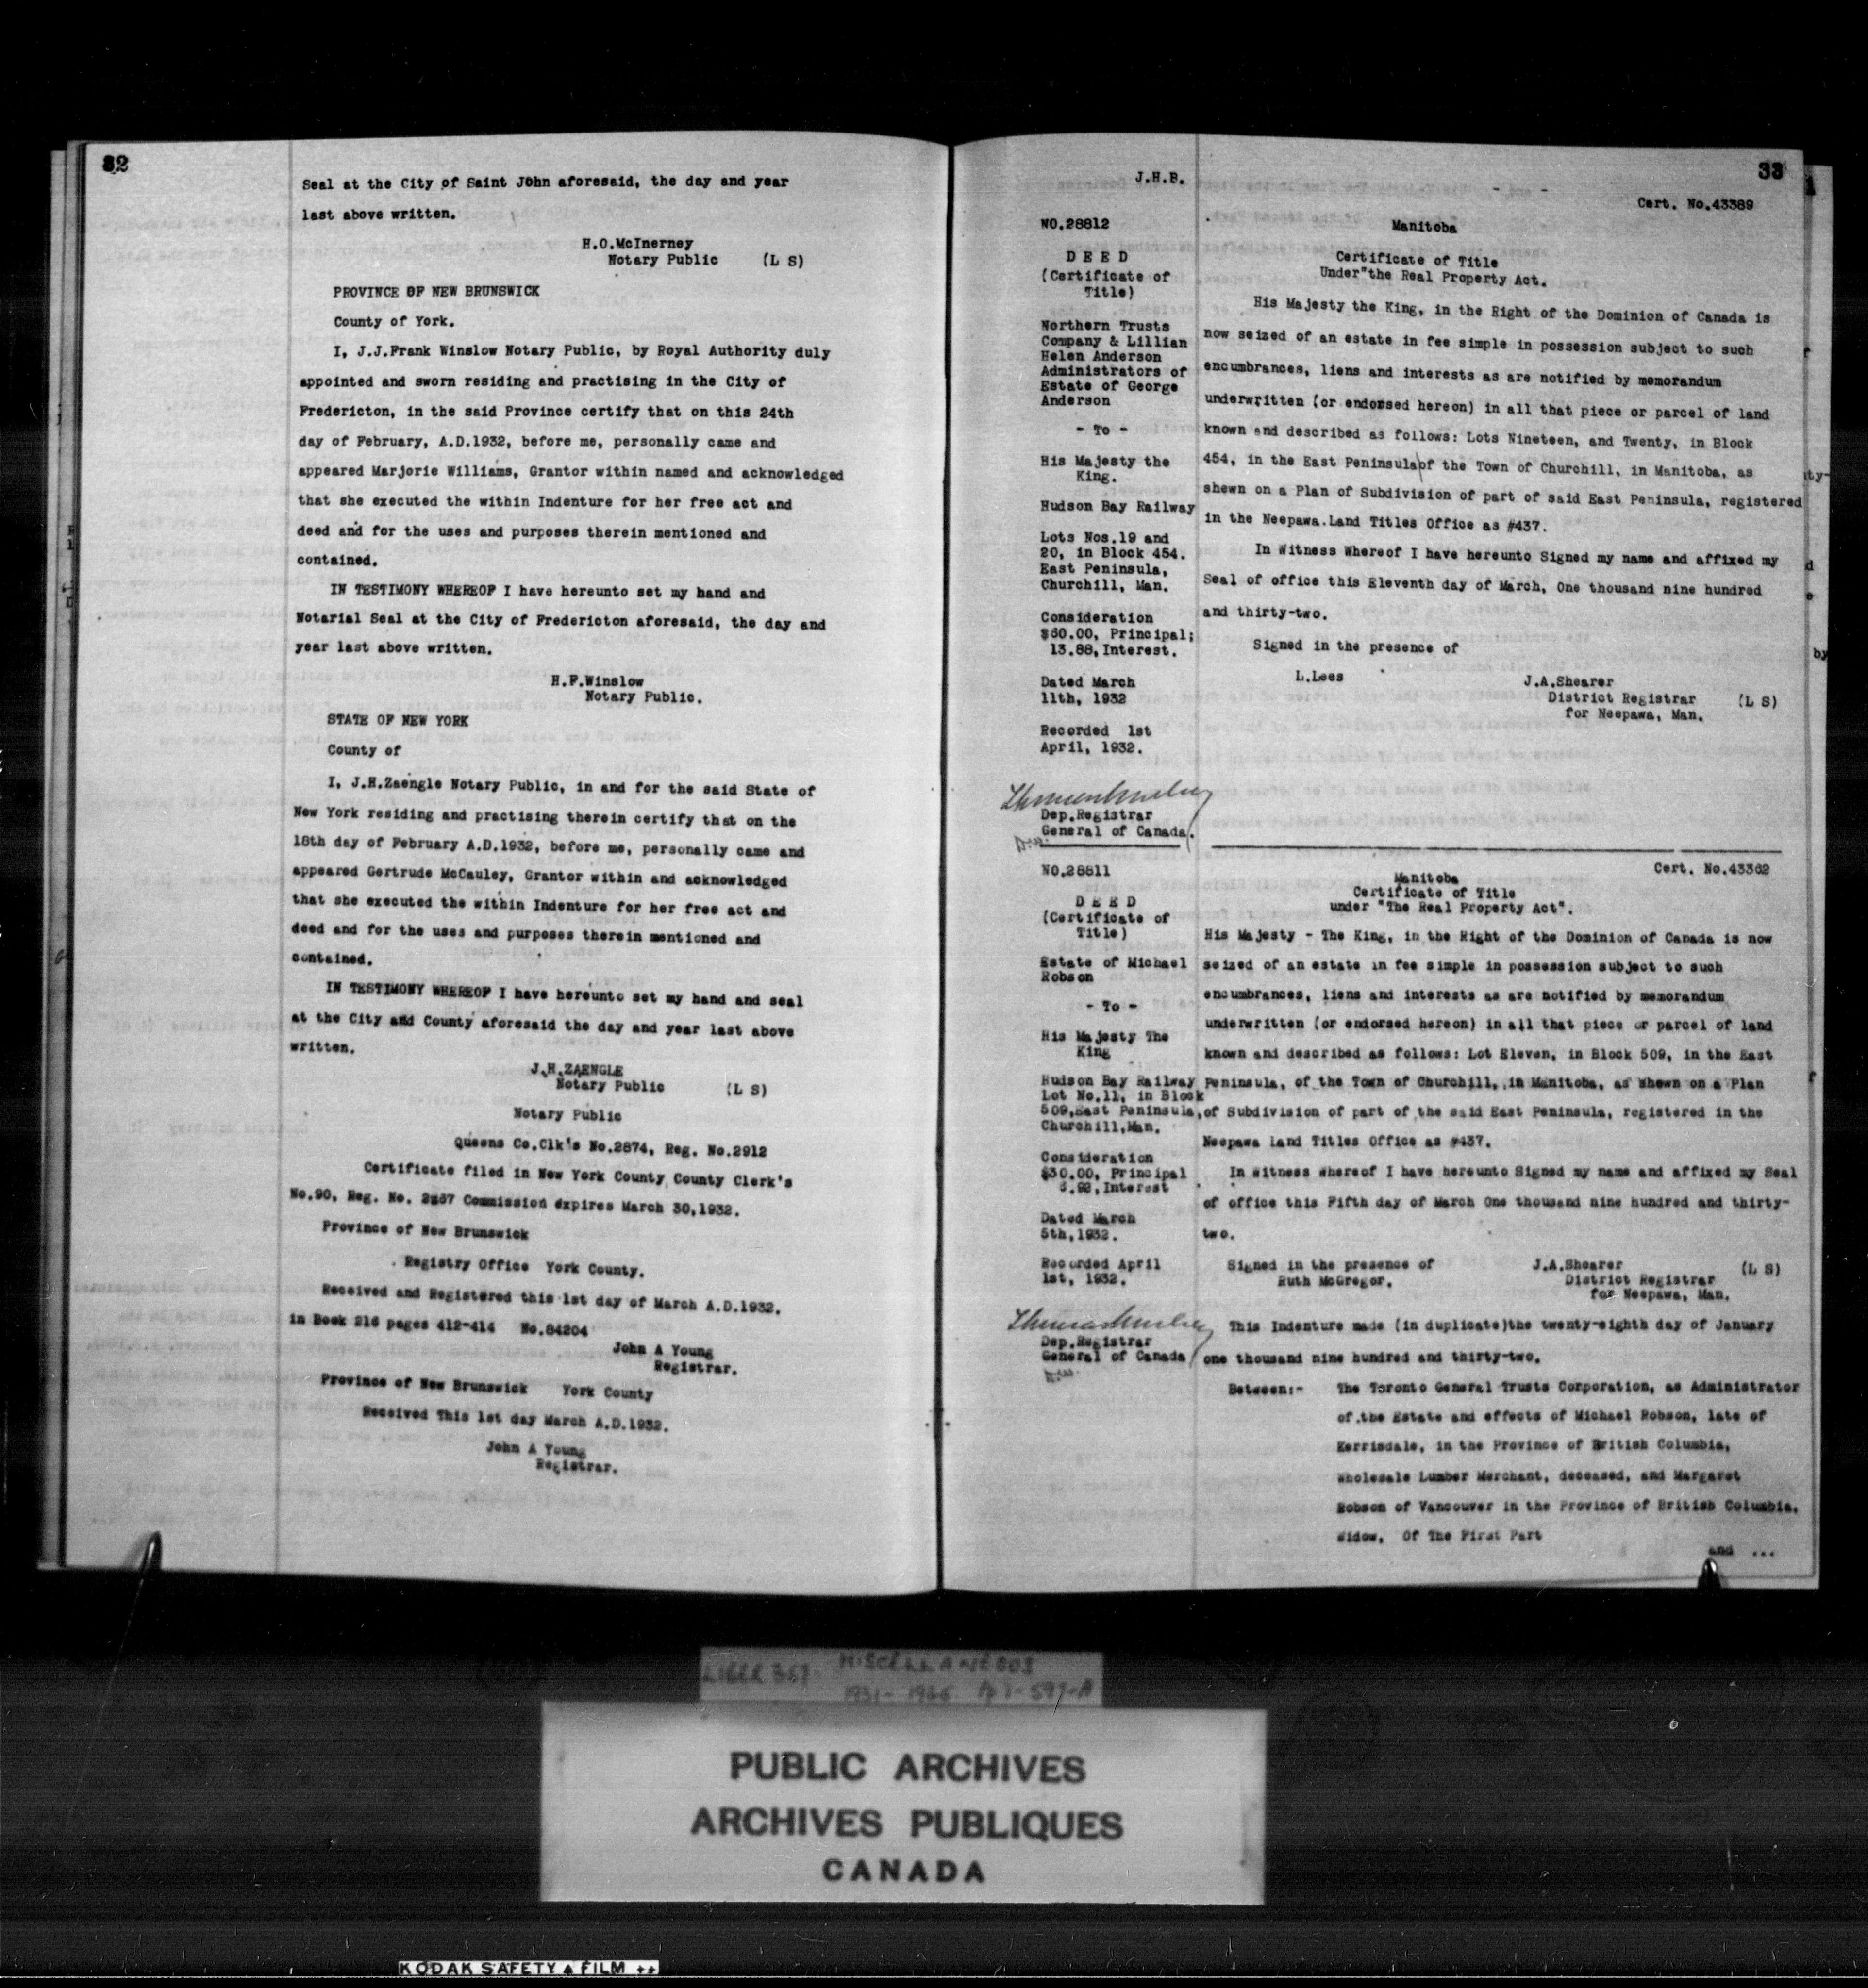 32
Seal at the City of Saint John aforesaid, the day and year
last above written.
H.O.McInerney
Notary Public (L S)
PROVINCE OF NEW BRUNSWICK
County of York.
I, J.J.Frank Winslow Notary Public, by Royal Authority duly
appointed and sworn residing and practising in the City of
Fredericton, in the said Province certify that on this 24th
day of February, A.D.1932, before me, personally came and
appeared Marjorie Williams, Grantor within named and acknowledged
that she executed the within Indenture for her free act and
deed and for the uses and purposes therein mentioned and
contained.
IN TESTIMONY WHEREOF I have hereunto set my hand and
Notarial Seal at the City of Fredericton aforesaid, the day and
year last above written.
H.F.Winslow
Notary Public.
STATE OF NEW YORK
County of
I, J.H.Zaengle Notary Public, in and for the said State of
New York residing and practising therein certify that on the
18th day of February A.D.1932, before me, personally came and
appeared Gertrude McCauley, Grantor within and acknowledged
that she executed the within Indenture for her free act and
deed and for the uses and purposes therein mentioned and
contained.
IN TESTIMONY WHEREOF I have hereunto set my hand and seal
at the City and County aforesaid the day and year last above
written.
J.H.ZAENGLE
Notary Public (L S)
Notary Public
Queens Co.Clk's No.2874, Reg. No.2912
Certificate filed in New York County County Clerk's
No.90, Reg. No. Commission expires March 30,1932.
Province of New Brunswick
Registry Office York County.
Received and Registered this 1st day of March A.D.1932.
in Book 216 pages 412-414 No.84204
John A Young
Registrar.
Province of New Brunswick York County
Received This 1st day March A.D.1932.
John A Young
Registrar.
33
J.H.B.
NO.28812
D E E D
(Certificate of
Title)
Northern Trusts
Company & Lillian
Helen Anderson
Administrators of
Estate of George
Anderson
- To -
His Majesty the
King.
Hudson Bay Railway
Lots Nos.19 and
20, in Block 454.
East Peninsula,
Churchill, Man.
Consideration
$60.00, Principal;
13.88, Interest.
Dated March
11th, 1932
Recorded 1st
April, 1932.
Dep.Registrar
General of Canada.
Cert. No.43389
Manitoba
Certificate of Title
Under"the Real Property Act.
His Majesty the King, in the Right of the Dominion of Canada is
now seized of an estate in fee simple in possession subject to such
encumbrances, liens and interests as are notified by memorandum
underwritten (or endorsed hereon) in all that piece or parcel of land
known and described as follows: Lots Nineteen, and Twenty, in Block
454, in the East Peninsula of the Town of Churchill, in Manitoba, as
shewn on a Plan of Subdivision of part of said East Peninsula, registered
in the Neepawa.Land Titles Office as #437.
In Witness Whereof I have hereunto Signed my name and affixed my
Seal of office this Eleventh day of March, One thousand nine hundred
and thirty-two.
Signed in the presence of
L.Lees J.A.Shearer
District Registrar (L S)
for Neepawa, Man.
NO.28811
D E E D
(Certificate of
Title)
Estate of Michael
Robson
- To -
His Majesty The
King
Hudson Bay Railway
Lot No.11, in Block
509,East Peninsula,
Churchill,Man.
Consideration
$30.00, Principal
.92, Interest
Dated March
5th,1932.
Recorded April
1st, 1932.
Dep.Registrar
General of Canada
Cert. No.43362
Manitoba
Certificate of Title
under "The Real Property Act".
His Majesty - The King, in the Right of the Dominion of Canada is now
seized of an estate in fee simple in possession subject to such
encumbrances, liens and interests as are notified by memorandum
underwritten (or endorsed hereon) in all that piece or parcel of land
known and described as follows: Lot Eleven, in Block 509, in the East
Peninsula, of the Town of Churchill, in Manitoba, as shewn on a Plan
of Subdivision of part of the said East Peninsula, registered in the
Neepawa Land Titles Office as #437.
In Witness whereof I have hereunto Signed my name and affixed my Seal
of office this Fifth day of March One thousand nine hundred and thirty-
two.
Signed in the presence of J.A.Shearer (L S)
Ruth McGregor. District Registrar
for Neepawa, Man.
This Indenture made (in duplicate)the twenty-eighth day of January
one thousand nine hundred and thirty-two.
Between:- The Toronto General Trusts Corporation, as Administrator
of.the Estate and effects of Michael Robson, late of
Kerrisdale, in the Province of British Columbia,
Wholesale Lumber Merchant, deceased, and Margaret
Robson of Vancouver in the Province of British Columbia,
Widow, Of The First Part
and ...
LIBER 367: MISCELLANEOUS
1931-1935 Pp 1-597-A
PUBLIC ARCHIVES
ARCHIVES PUBLIQUES
CANADA
KODAK SAFETY FILM